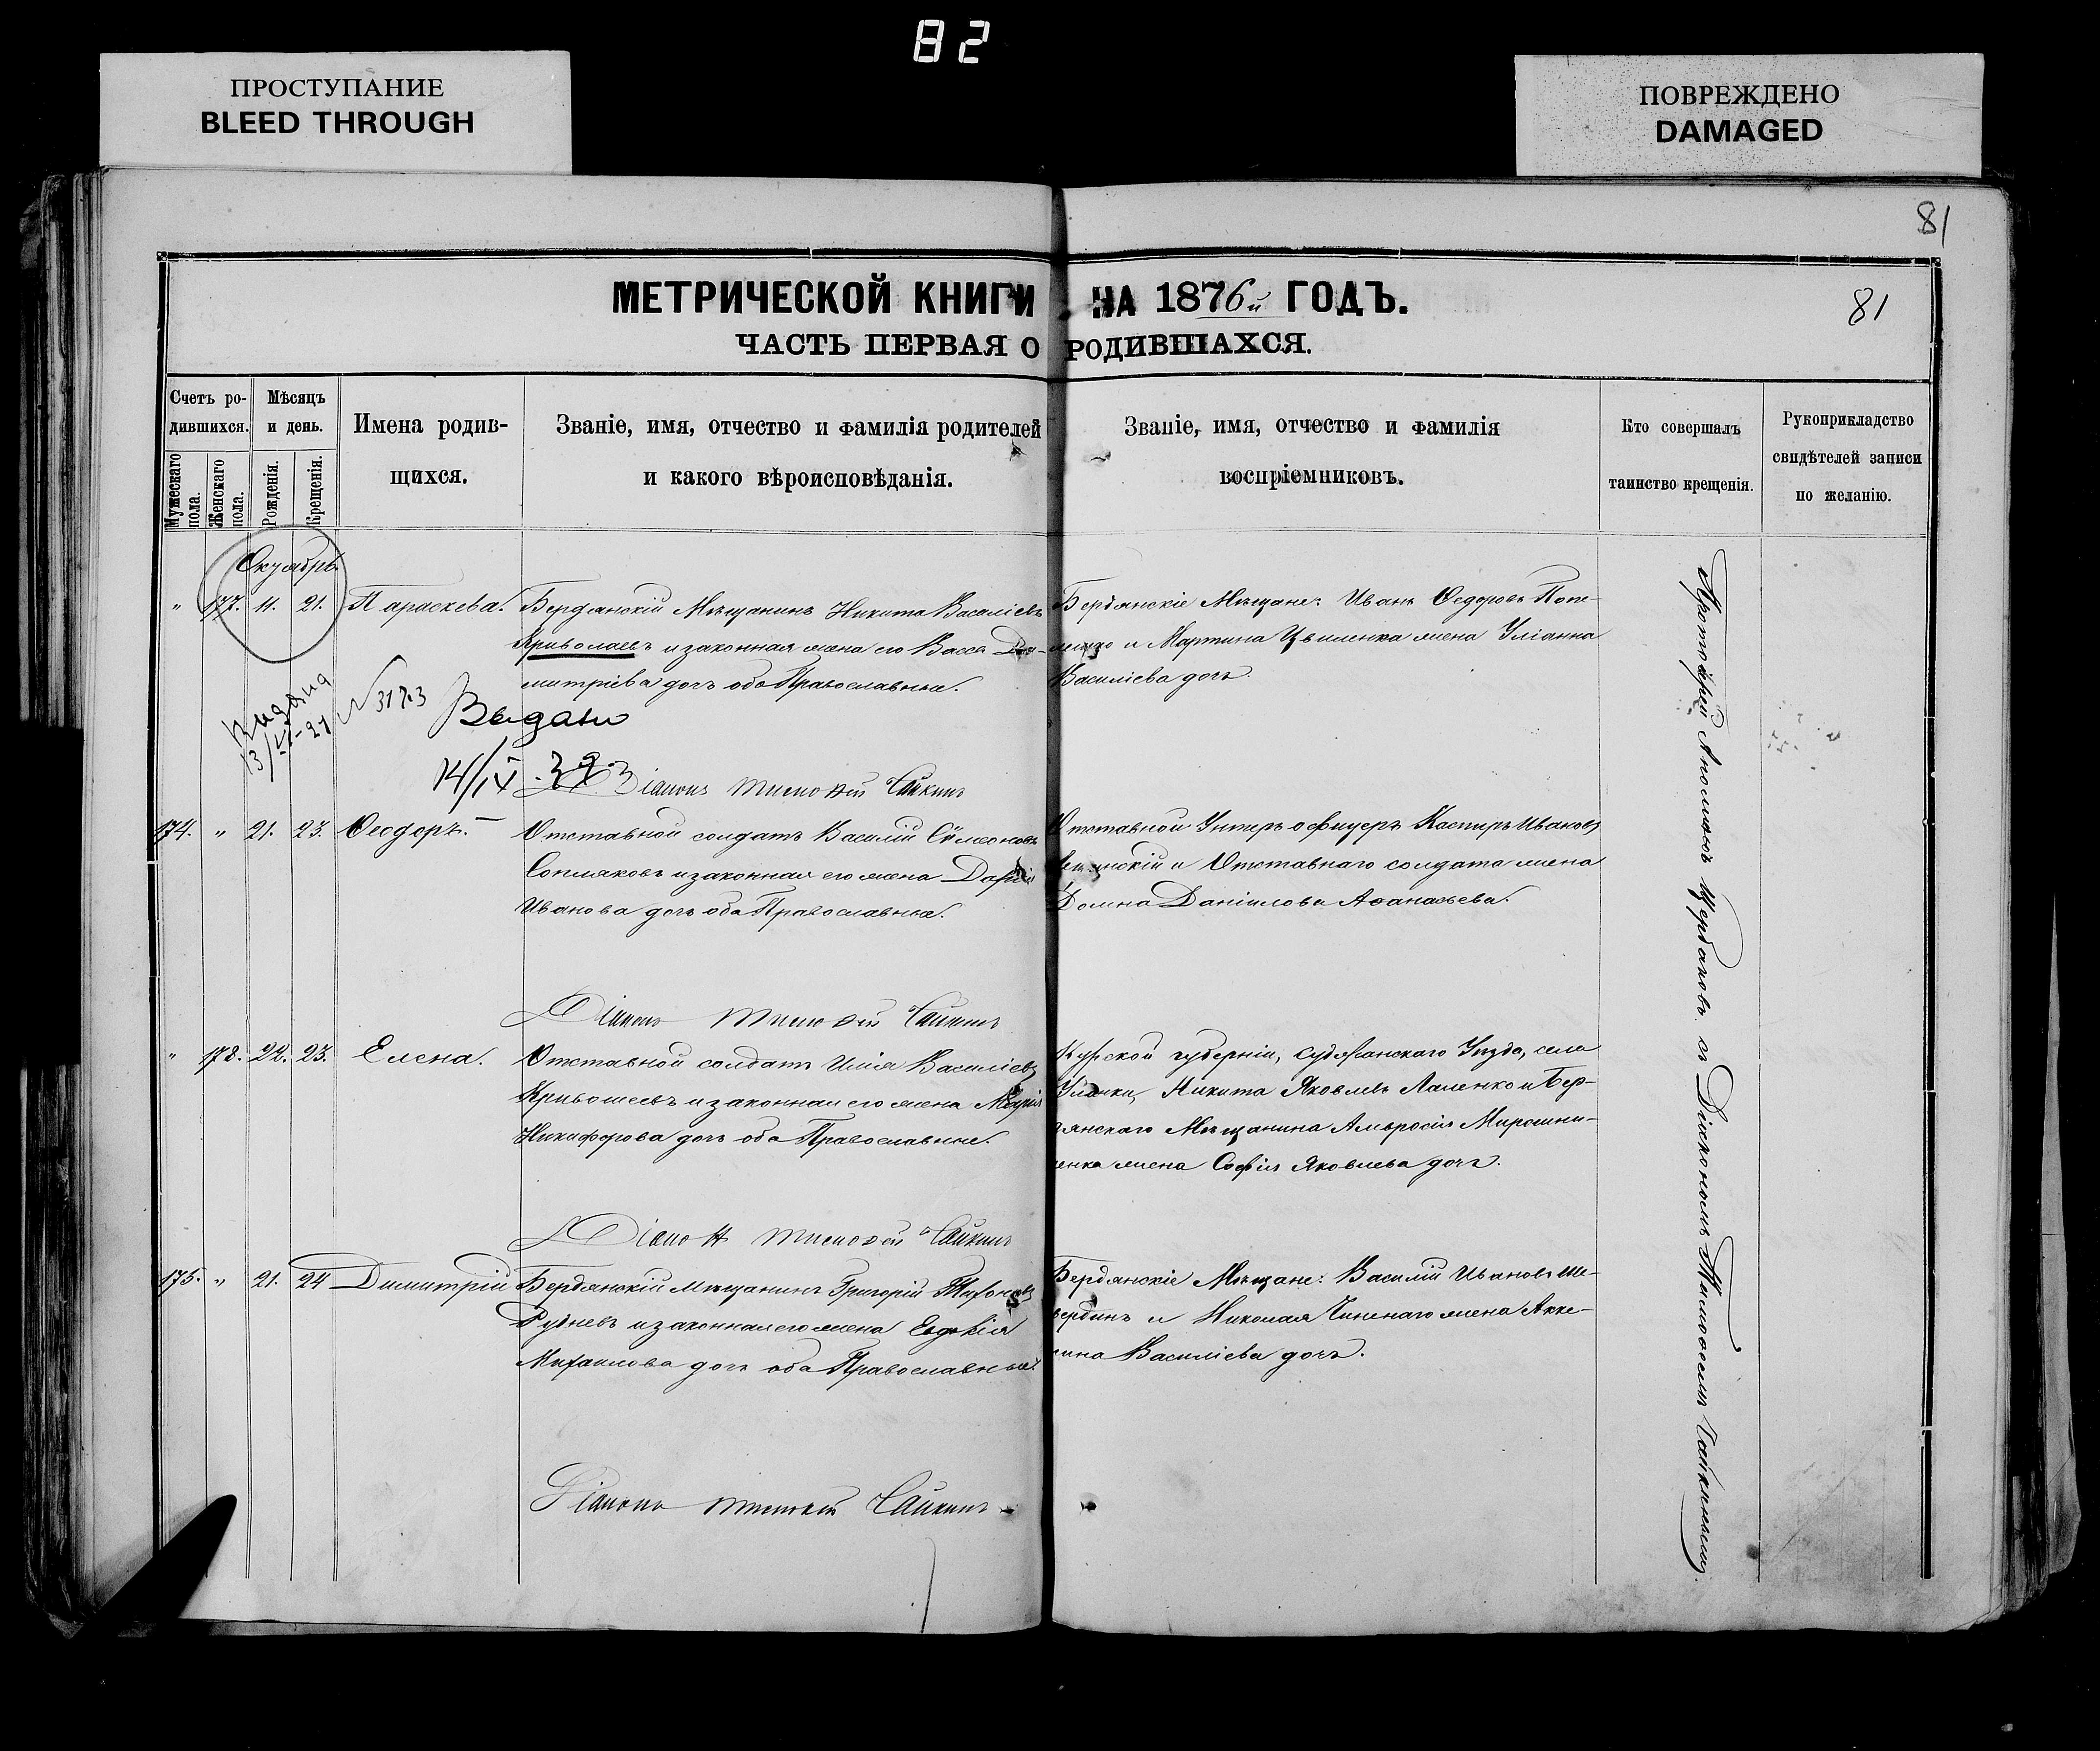 82
ПРОСТУПАНИЕ
BLEED THROUGH
ПОВРЕЖДЕНО
DAMAGED
81
МЕТРИЧЕСКОЙ КНИГИ НА 1876й ГОДЪ.
81
ЧАСТЬ ПЕРВАЯ О РОДИВШАХСЯ.
Счетъ ро-
дившихся.
Мужескаго пола.
Женскаго пола.
Мѣсяцъ
и день.
Рожденія.
Крещенія.
Имена родив-
щихся.
Званіе, имя, отчество и фамилія родителей
и какого вѣроисповѣданія.
Званіе, имя, отчество и фамилія
воспріемниковъ.
Кто совершалъ
таинство крещенія.
Рукоприкладство
свидѣтелей записи
по желанію.
Октябрь
" 177. 11. 21. Параскева.
Бердянскій Мѣщанинъ Никита Василіевъ
Криволаевъ и законная жена его Васса Ди-
митріева дочь оба Православные.
Бердянскіе Мѣщане: Иванъ Ѳедоровъ Попе-
и Мартина Цвиленка жена Уліанна
Василіева дочь.
N 3173
Выдано
14/IX
Діаконъ Тимоѳей Чайкинъ
174. " 21. 23. Ѳеодоръ.
Отставной солдатъ Василій Сѵмеоновъ
Сопляковъ и законная его жена Дарія
Иванова дочь оба Православные.
Отставной Унтеръ офицеръ Каспиръ Ивановъ
и Отставнаго солдата жена
Домна Даніилова Аѳанасьева.
Діаконъ Тимоѳей Чайкинъ
" 178. 22. 23. Елена.
Отставной солдатъ Илія Василіевъ
Кривошеевъ и законная его жена Марія
Никифорова дочь оба Православные.
Курской губерніи, Суджанскаго Уѣзда, села
Уланки, Никита Яковлевъ Лаленко и Бер-
дянскаго Мѣщанина Амвросія Мирошни-
ченка жена Софія Яковлева дочь.
Діаконъ Тимоѳей Чайкинъ
175. " 21. 24 Димитрій
Бердянскій Мѣщанинъ Григорій Тихоновъ
Рудневъ и законная его жена Евдокія
Михаилова дочь оба Православные.
Бердянскіе Мѣщане: Василій Ивановъ Ше-
вердинъ и Николая Чиненаго жена Акке-
лина Василіева дочь.
Діаконъ Тимоѳей Чайкинъ
Протоіерей Аполлонъ Щербаковъ съ Діакономъ Тимоѳеемъ Чайкинымъ.